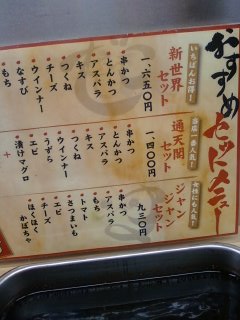 おすすめセットメニュー
いちばんお得!
新世界セット
一、六五〇円
串かつ
とんかつ
アスパラ
キス
キス
つくね
チーズ
ウインナー
なすび
もち
当店一番人気!
通天閣セット
一、四〇〇円
串かつ
とんかつ
アスパラ
キス
つくね
ウインナー
うずら
エビ
+
漬けマグロ
女性にも人気!
ジャンジャンセット
九三〇円
串かつ
アスパラ
もち
トマト
さつまいも
エビ
チーズ
ほくほくかぼちゃ